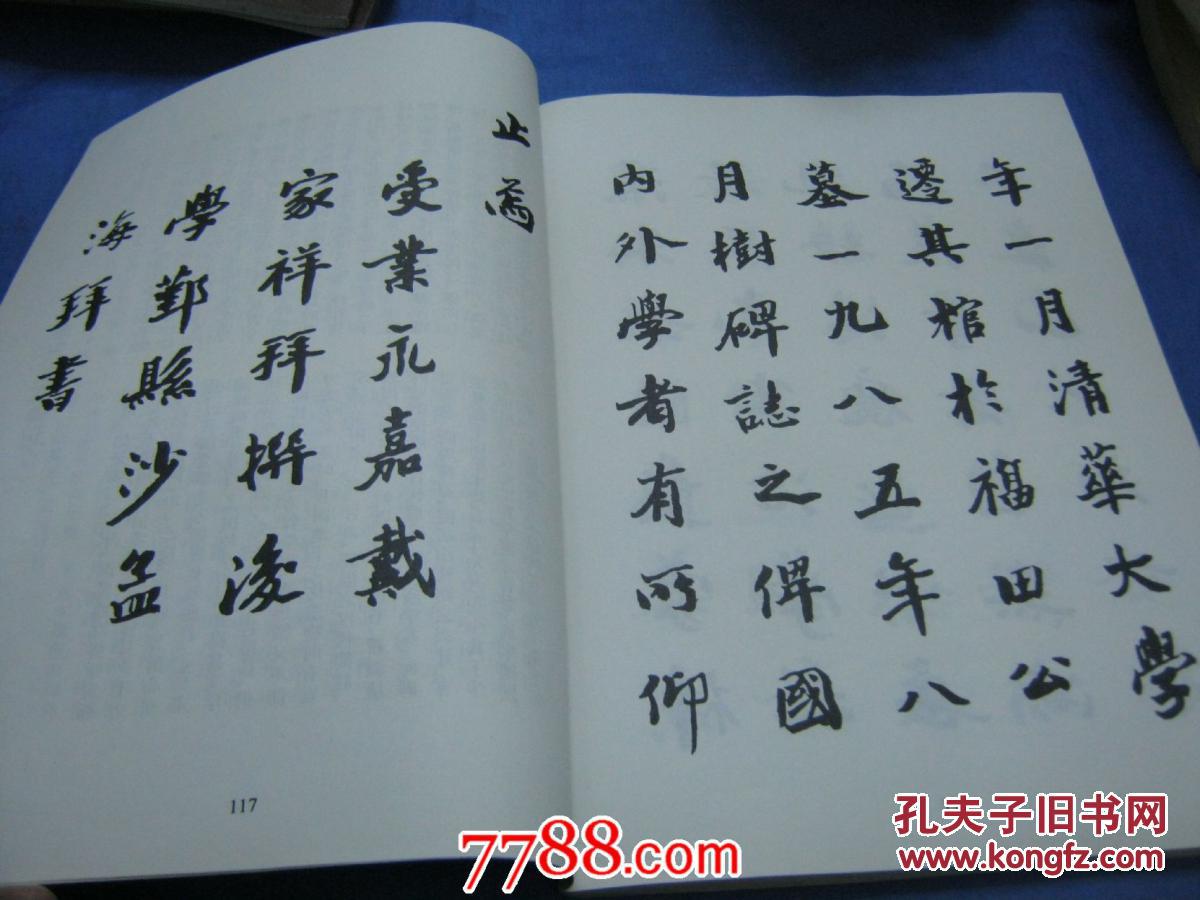 年一月清華大學
遷其棺於福田公
墓一九八五年八
月樹碑誌之俾國
内外學者有所仰
止焉
受業永嘉戴
家祥拜撰後
學鄞縣沙孟
海拜書
117
7788.com
孔夫子旧书网
www.kongfz.com